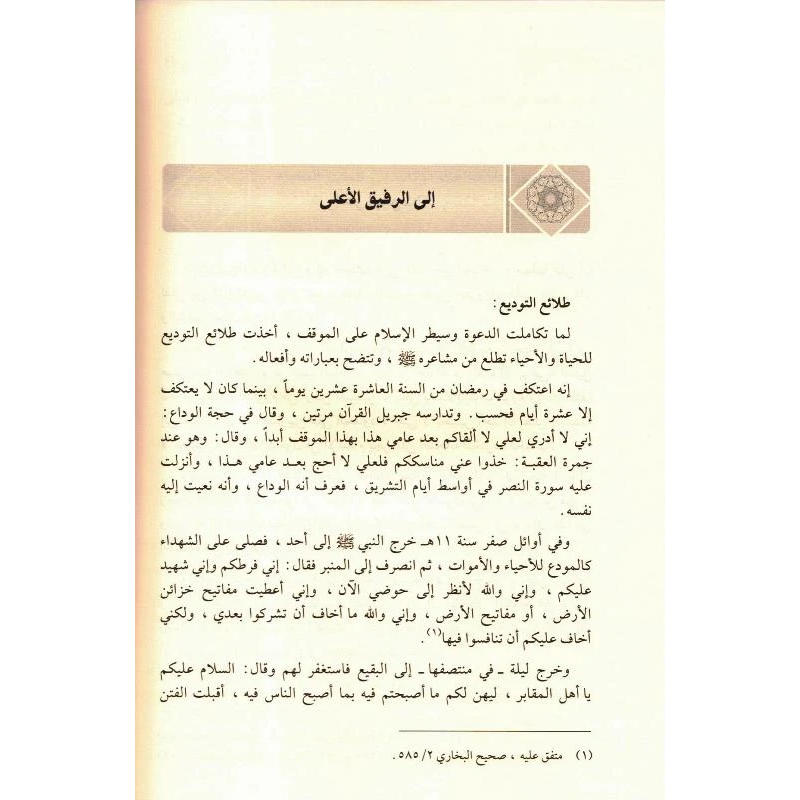 إلى الرفيق الأعلى
طلائع التوديع :
لما تكاملت الدعوة وسيطر الإسلام على الموقف ، أخذت طلائع التوديع
للحياة والأحياء تطلع من مشاعره ﷺ ، وتتضح بعباراته وأفعاله .
إنه اعتكف في رمضان من السنة العاشرة عشرين يوماً ، بينما كان لا يعتكف
إلا عشرة أيام فحسب . وتدارسه جبريل القرآن مرتين ، وقال في حجة الوداع :
إني لا أدري لعلي لا ألقاكم بعد عامي هذا بهذا الموقف أبداً ، وقال : وهو عند
جمرة العقبة : خذوا عني مناسككم فلعلي لا أحج بعد عامي هذا ، وأنزلت
عليه سورة النصر في أواسط أيام التشريق ، فعرف أنه الوداع ، وأنه نعيت إليه
نفسه .
وفي أوائل صفر سنة ١١هـ خرج النبي ﷺ إلى أحد ، فصلى على الشهداء
كالمودع للأحياء والأموات ، ثم انصرف إلى المنبر فقال : إني فرطكم وإني شهيد
عليكم ، وإني والله لأنظر إلى حوضي الآن ، وإني أعطيت مفاتيح خزائن
الأرض ، أو مفاتيح الأرض ، وإني والله ما أخاف أن تشركوا بعدي ، ولكني
أخاف عليكم أن تنافسوا فيها(١) .
وخرج ليلة ـ في منتصفها ـ إلى البقيع فاستغفر لهم وقال : السلام عليكم
يا أهل المقابر ، ليهن لكم ما أصبحتم فيه بما أصبح الناس فيه ، أقبلت الفتن
(١) متفق عليه ، صحيح البخاري ٢/ ٥٨٥ .